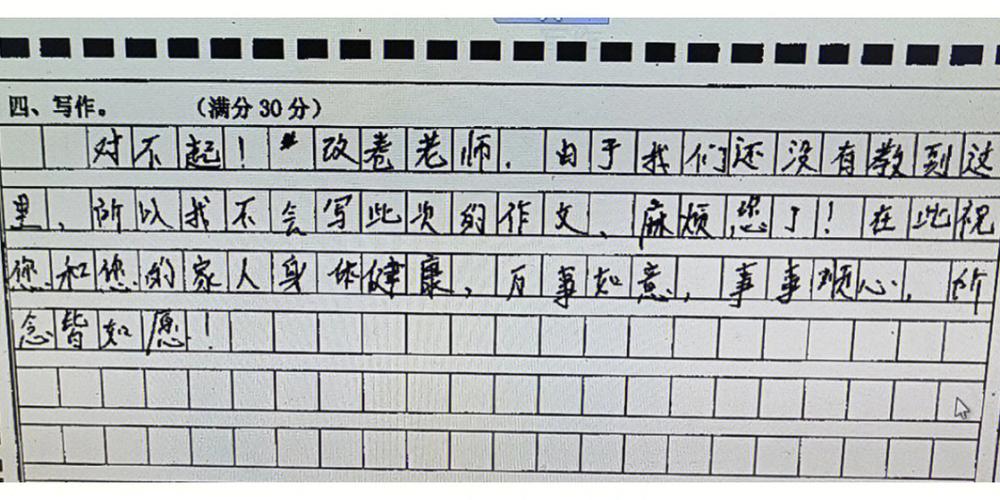 四、写作。 （满分30分）
对不起！改卷老师，由于我们还没有教到这
里，所以我不会写此次的作文、麻烦您了！在此祝
您和您的家人身体健康，万事如意，事事顺心，所
念皆如愿！